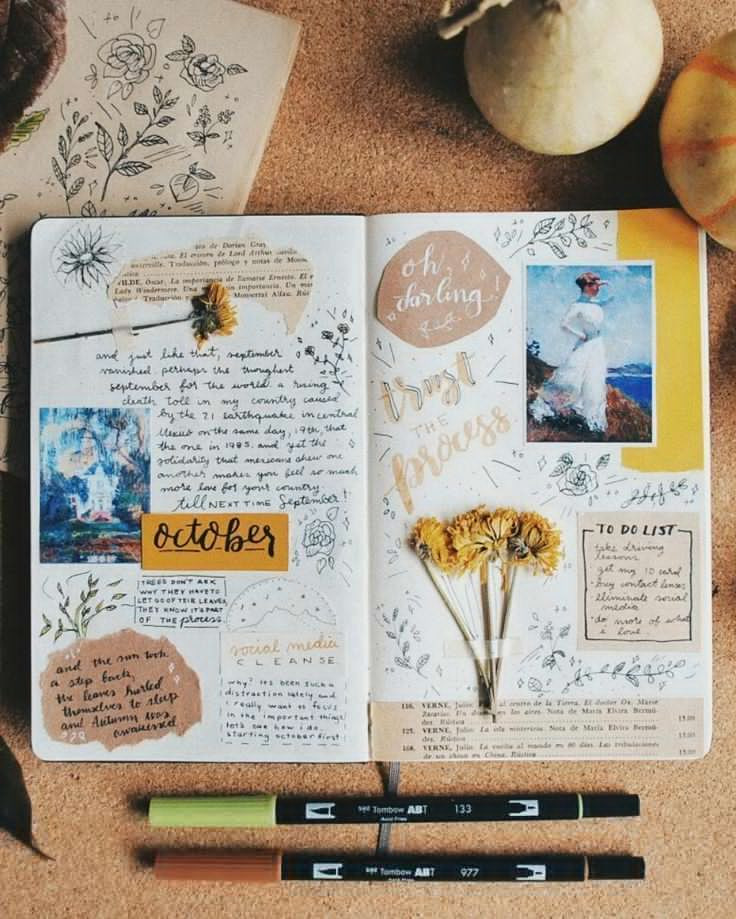 de Dorian Gray
El crimen de Lord Arthur
Traducción, prólogo y notas de
WILDE, Oscar. La importancia de llamarse Ernesto. El
Lady Windermere. Una sin importancia. Un mar
Traducción Montserrat Alfau. Rústica
and just like that, september
vanished. perhaps the thoughest
september for the world. a rising
death toll in my country caused
by the 7.1 earthquake in central
Mexico on the same day, 19th, that
the one in 1985. and yet the
solidarity that mexicans show one
another makes you feel so much
more love for your country.
till NEXT TIME September!
october
TREES DON'T ASK
WHY THEY HAVE TO
LET GO OF THEIR LEAVES,
THEY KNOW IT'S PART
OF THE process.
and the sun took
a step back,
the leaves hurled
themselves to sleep
and Autumn was
awakened.
social media
CLEANSE
why? its been such a
distraction lately and
i really want to focus
in the important things
lets see how i do.
starting october first!
oh,
darling!
trust
THE
process
TO DO LIST
take driving
lessons
get my ID card
buy contact lenses
eliminate social
media
do more of what
i love.
116. VERNE, Julio. al centro de la Tierra. El doctor Ox. Maese
Zacarías. Un en los aires. Nota de María Elvira Bermú-
dez. Rústica 15.00
125. VERNE, Julio. La isla misteriosa. Nota de María Elvira Bermú-
dez. Rústica 15.00
168. VERNE, Julio. La vuelta al mundo en 80 días. Las tribulaciones
de un chino en China. Rústica 15.00
Tombow ABT 133
Acid Free
Tombow ABT 977
Acid Free